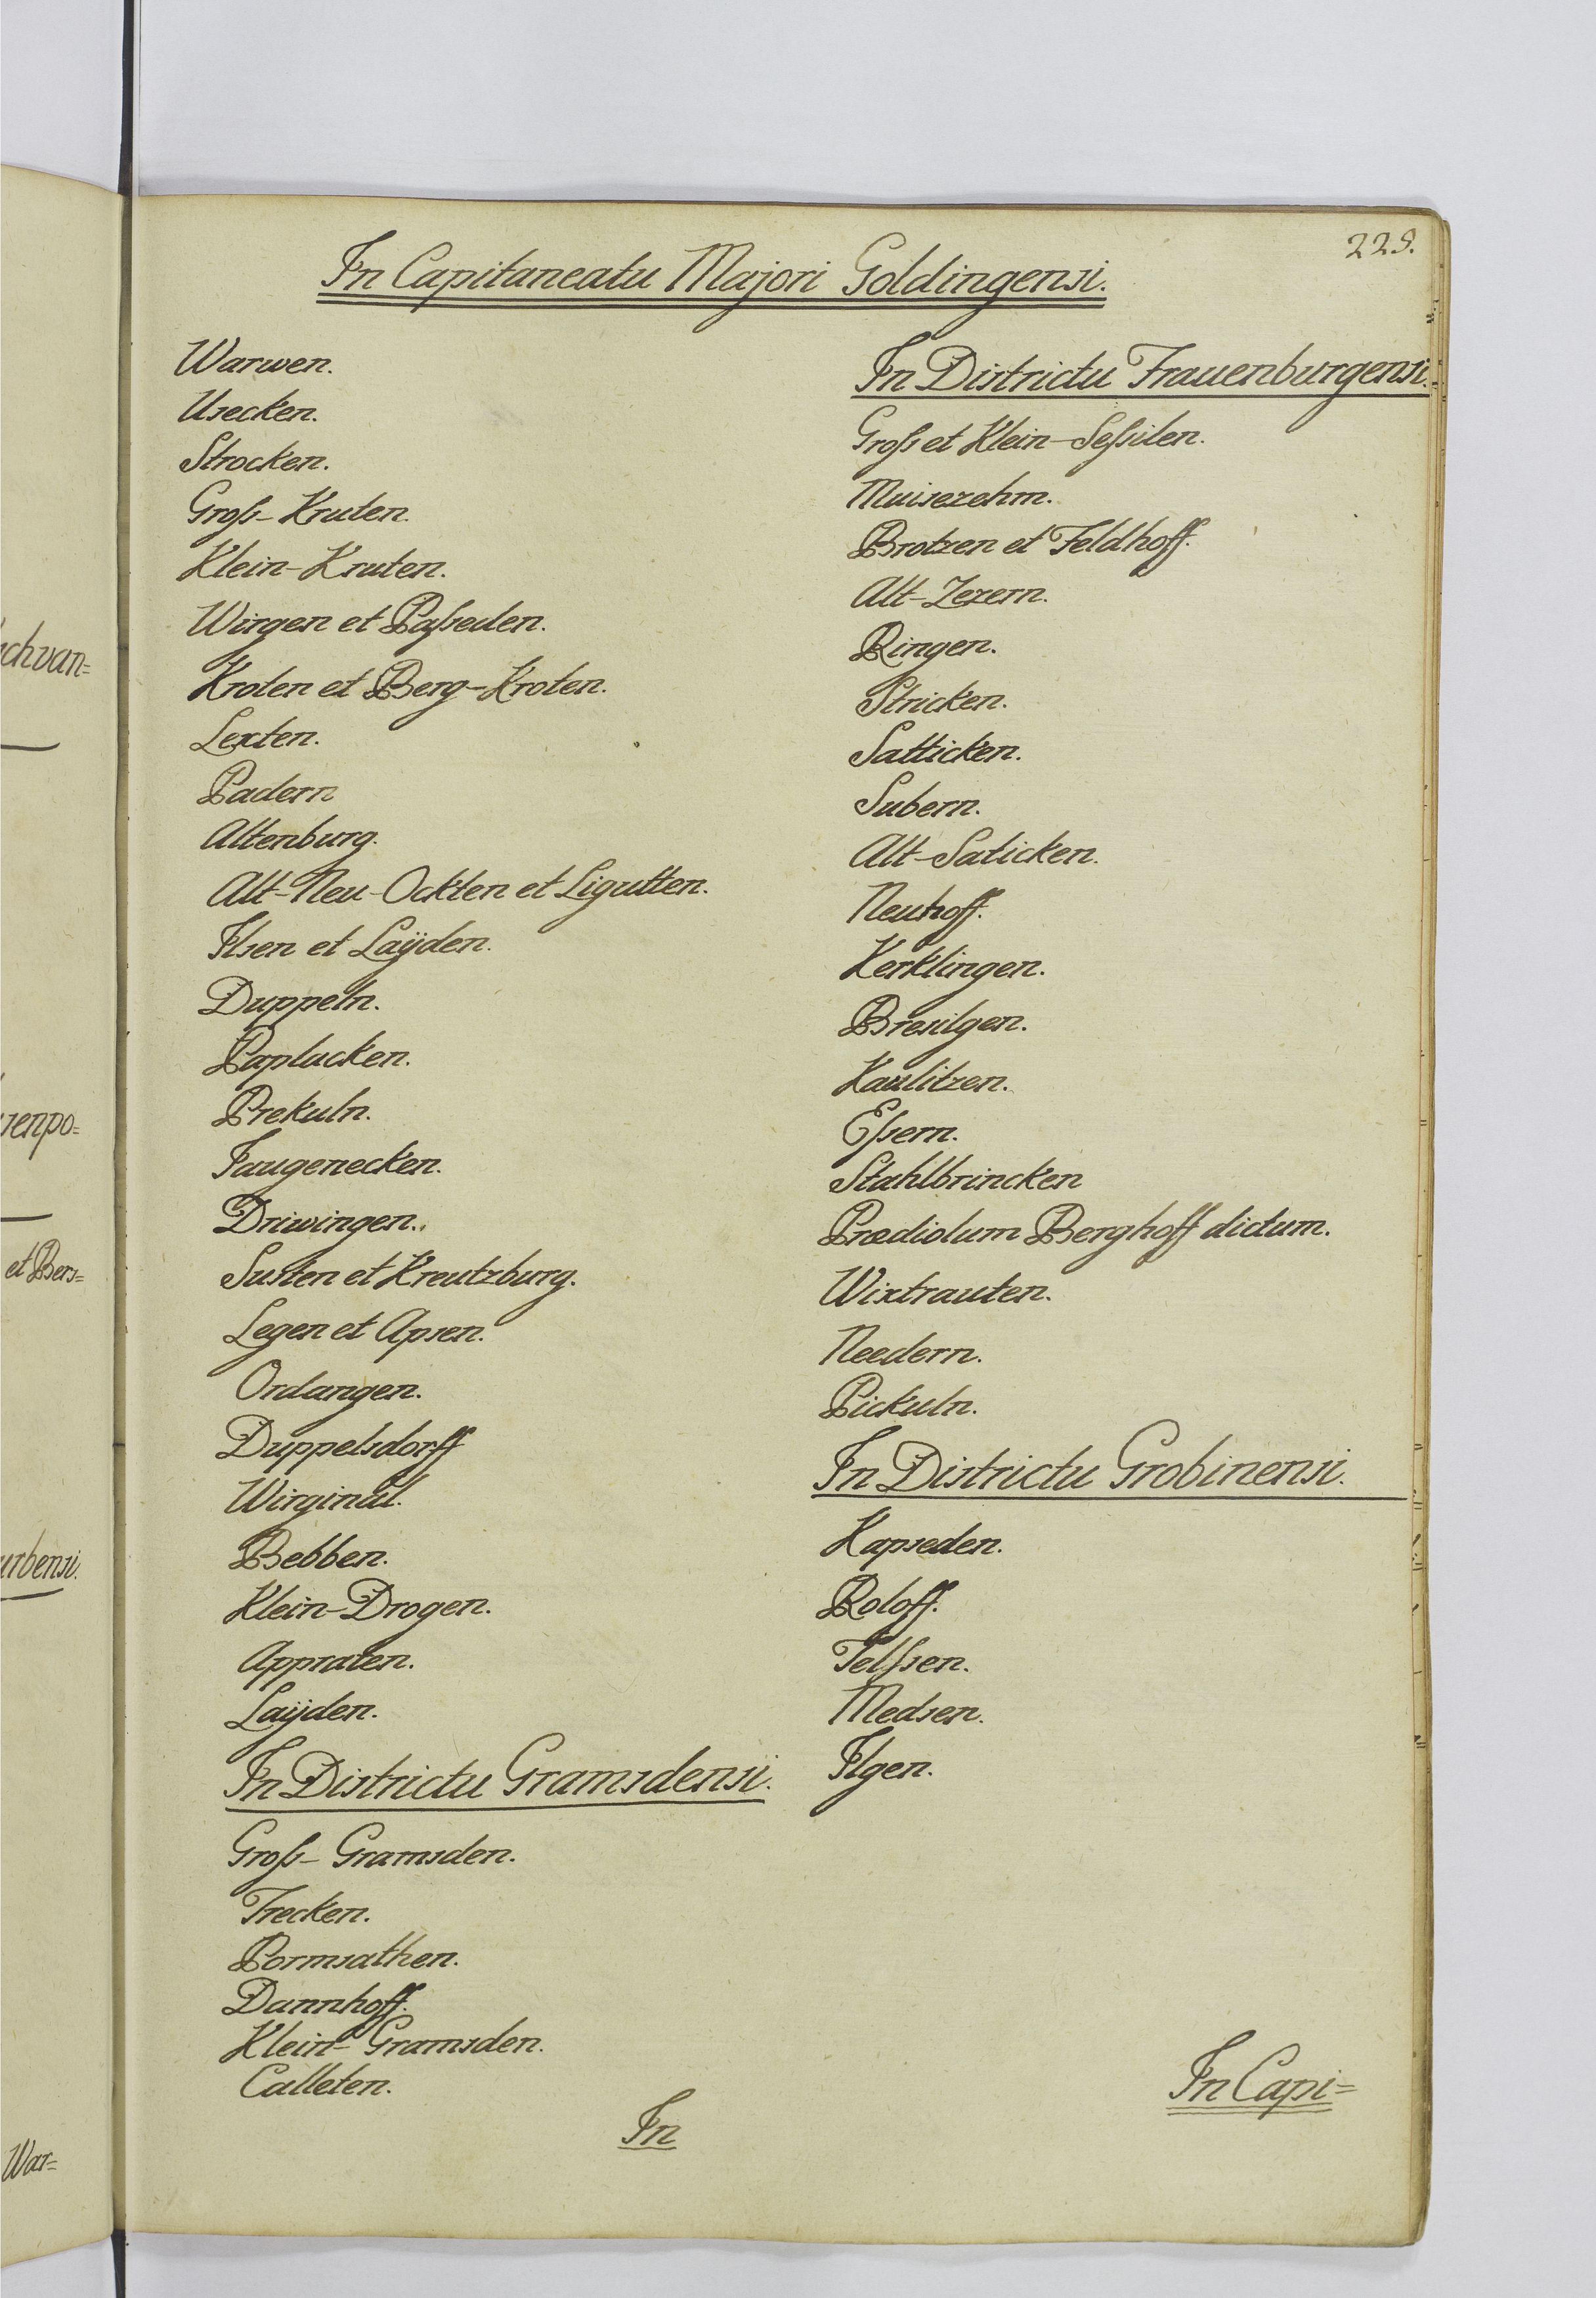 229.
In Capitaneatu Majori Goldingensi.
Warwen.
Usecken.
Strocken.
Groß-Kruten.
Klein-Kruten.
Wirgen et Paßeden.
Kroten et Berg-Kroten.
Lexten.
Padern
Altenburg.
Alt-Neu-Ockten et Ligutten.
Ilsen et Laÿden.
Duppeln.
Paplacken.
Prekuln.
Faugenecken.
Driwingen.
Susten et Kreutzburg.
Legen et Apsen.
Ordangen.
Duppelsdorff
Wirginal.
Bebben.
Klein-Drogen.
Appraten.
Laÿden.
In Districtu Gramsdensi.
Groß-Gramsden.
Trecken.
Pormsathen.
Dannhoff.
Klein-Gramsden.
Calleten.
In
In Districtu Frauenburgensi.
Groß et Klein-Seßilen.
Muisezehm.
Brotzen et Feldhoff.
Alt-Zezern.
Ringen.
Stricken.
Satticken.
Subern.
Alt-Saticken.
Neuhoff.
Kerklingen.
Bresilgen.
Kaulitzen.
Eßern.
Stahlbrincken
Prædiolum Berghoff dictum.
Wixtrauten.
Needern.
Pickuln.
In Districtu Grobinensi.
Kapseden.
Roloff.
Telßen.
Medsen.
Ilgen.
In Capi=
chvan=
senpo=
et Bers=
urbensi.
War=